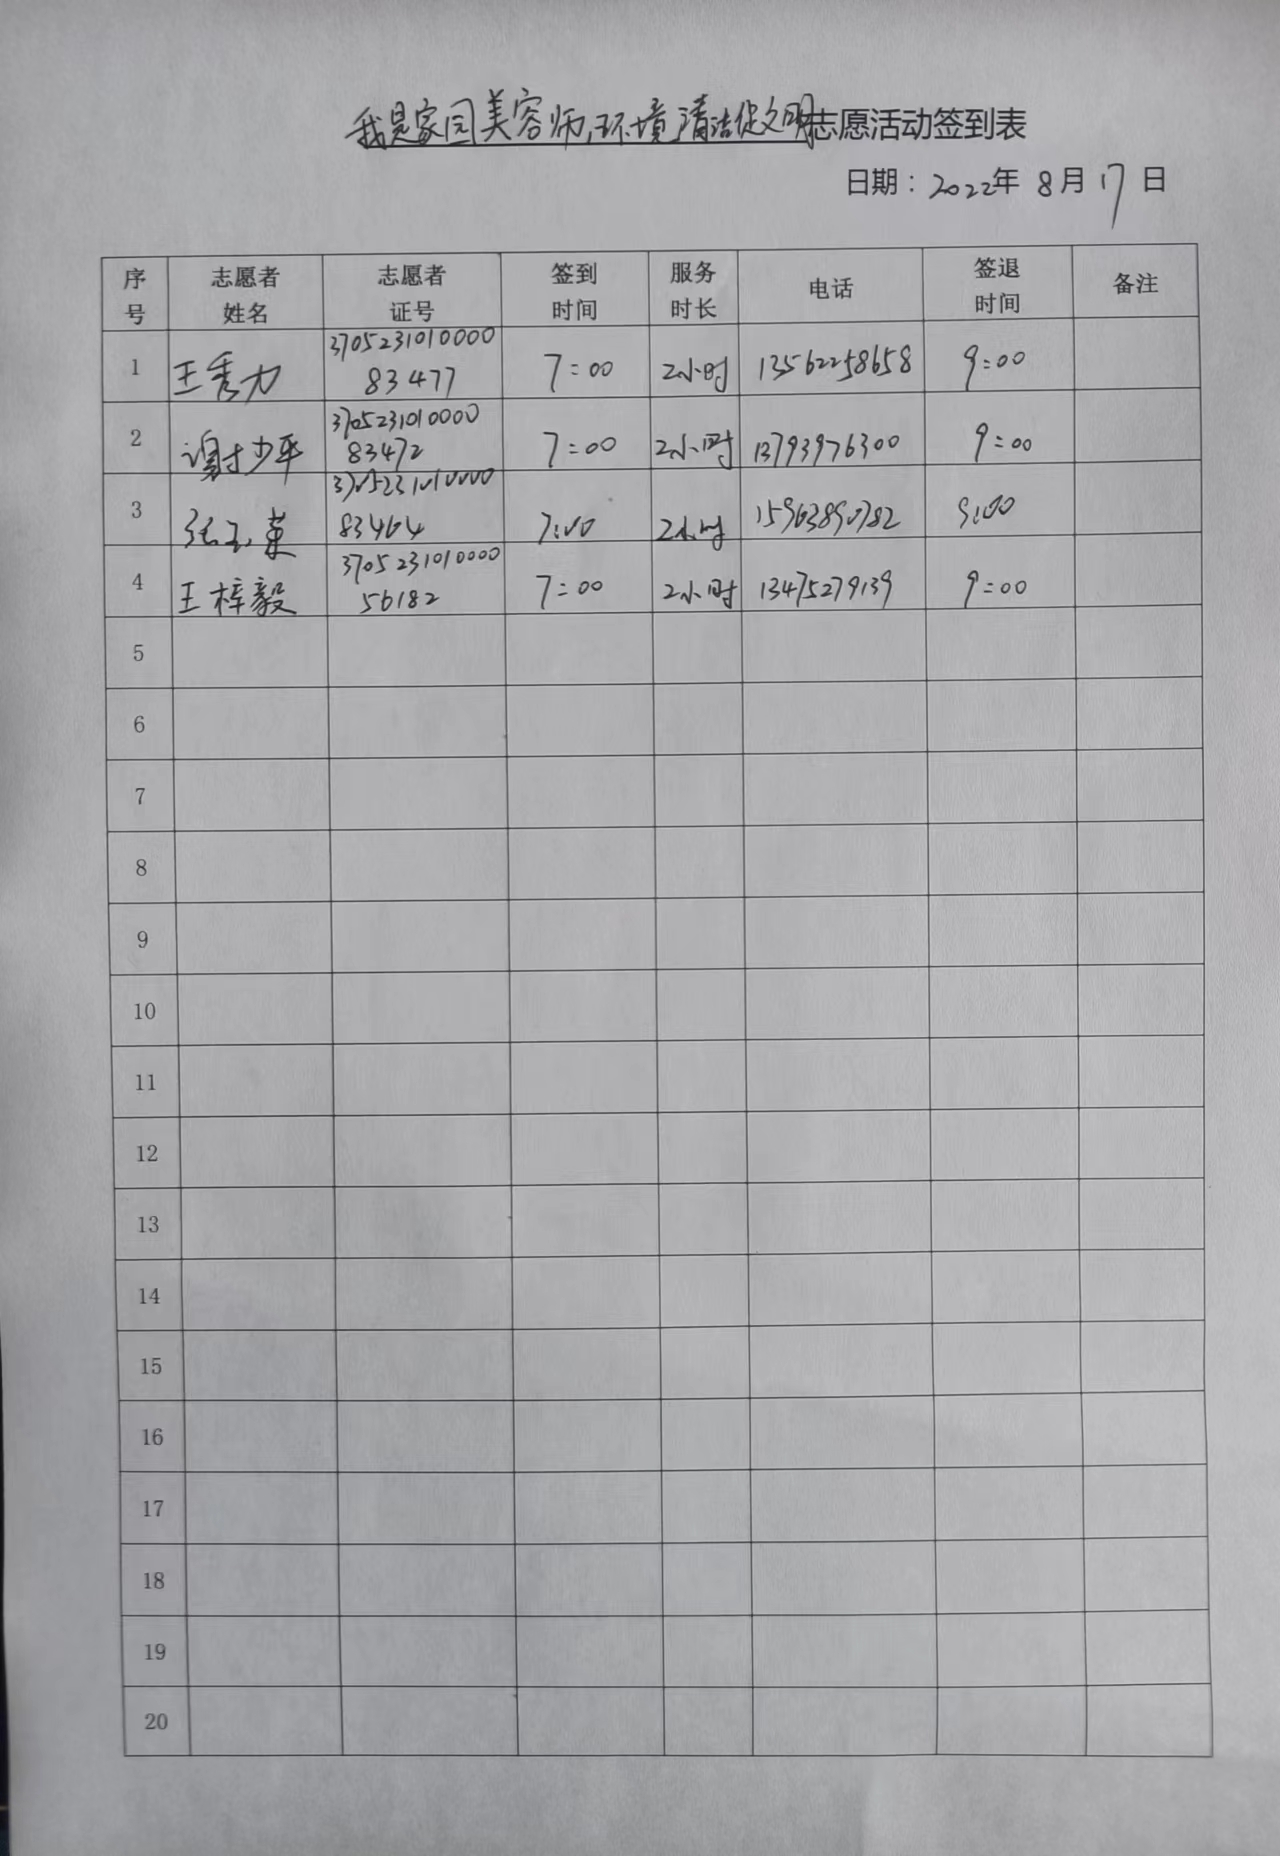 我是家园美容师,环境清洁促文明志愿活动签到表
日期：2022年 8月 17日
序号 志愿者姓名 志愿者证号 签到时间 服务时长 电话 签退时间 备注
1 王秀力 370523101000083477 7:00 2小时 13562258658 9:00
2 谢少平 370523101000083472 7:00 2小时 13793976300 9:00
3 张玉英 370523101000083464 7:00 2小时 15963890782 9:00
4 王梓毅 370523101000056182 7:00 2小时 13475279139 9:00
5
6
7
8
9
10
11
12
13
14
15
16
17
18
19
20